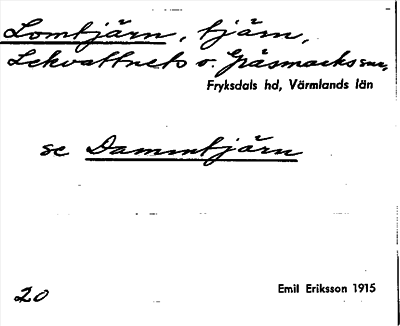 Lomtjärn, tjärn,
Lekvattnets o. Gräsmarks snr,
Fryksdals hd, Värmlands län
se Dammtjärn
20
Emil Eriksson 1915